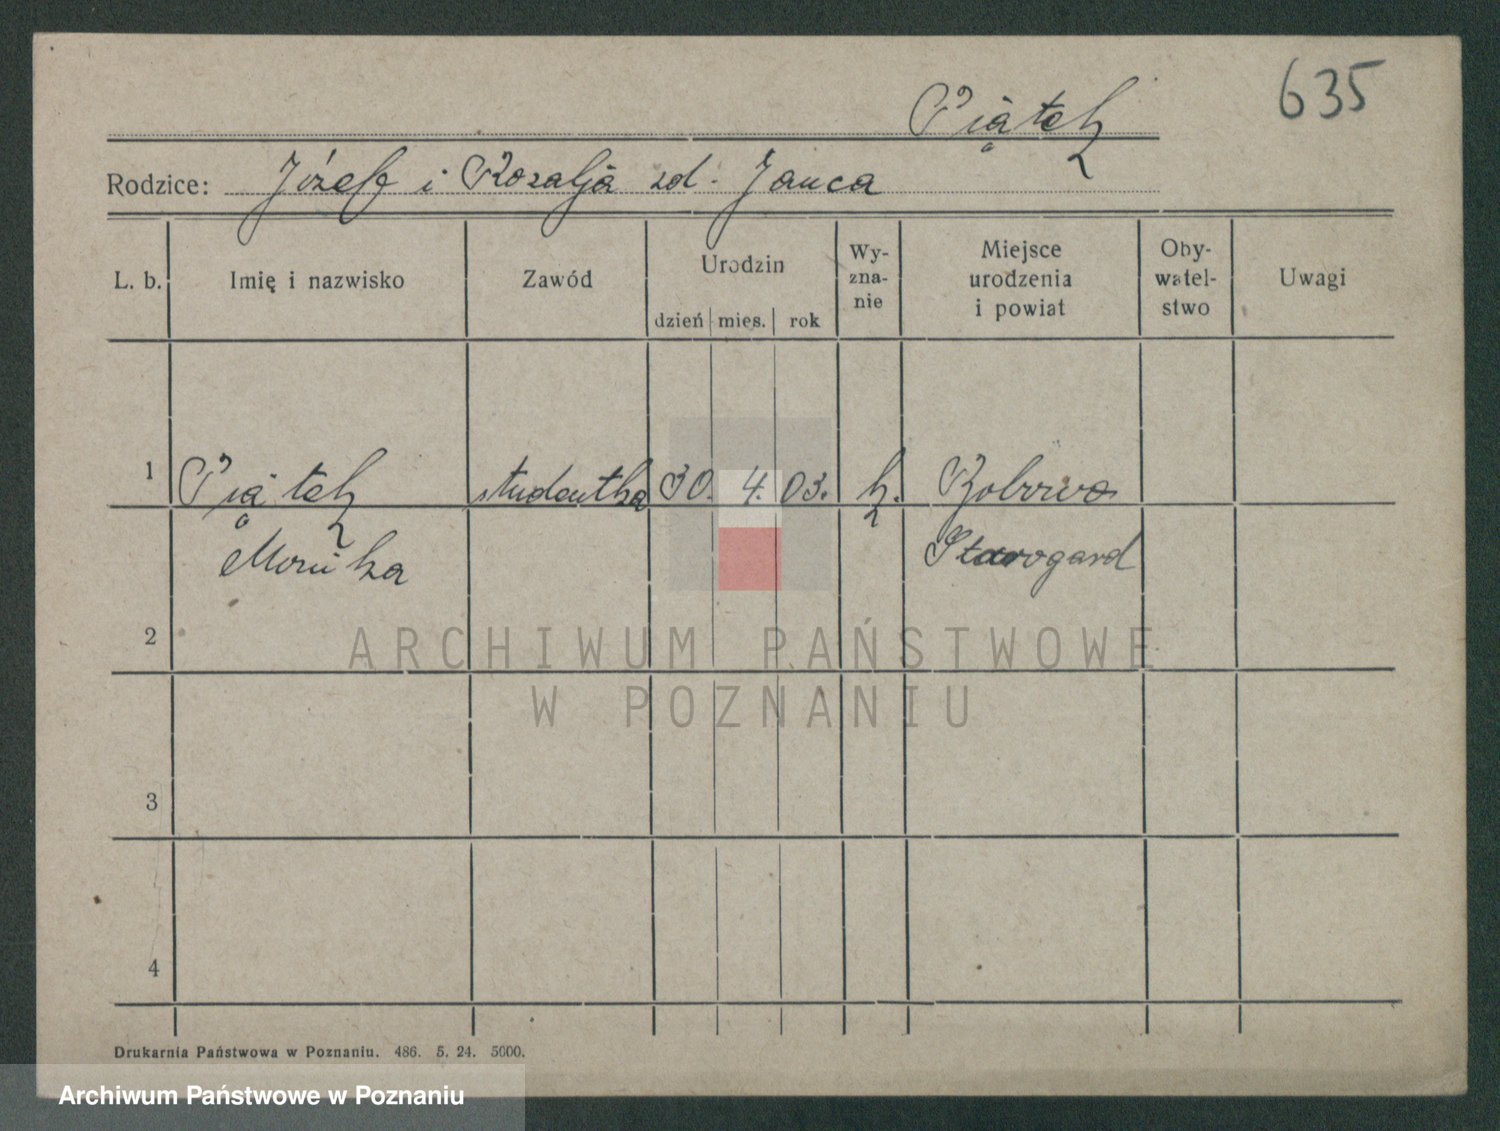 635
Piątek
Rodzice: Józef i Rozalja zd. Janca
L. b. Imię i nazwisko Zawód Urodzin dzień mies. rok Wy-zna-nie Miejsce urodzenia i powiat Oby-watel-stwo Uwagi
1 Piątek studentka 30. 4. 03. k. Bobowo
Monika Starogard
2
ARCHIWUM PAŃSTWOWE
W POZNANIU
3
4
Drukarnia Państwowa w Poznaniu. 486. 5. 24. 5000.
Archiwum Państwowe w Poznaniu